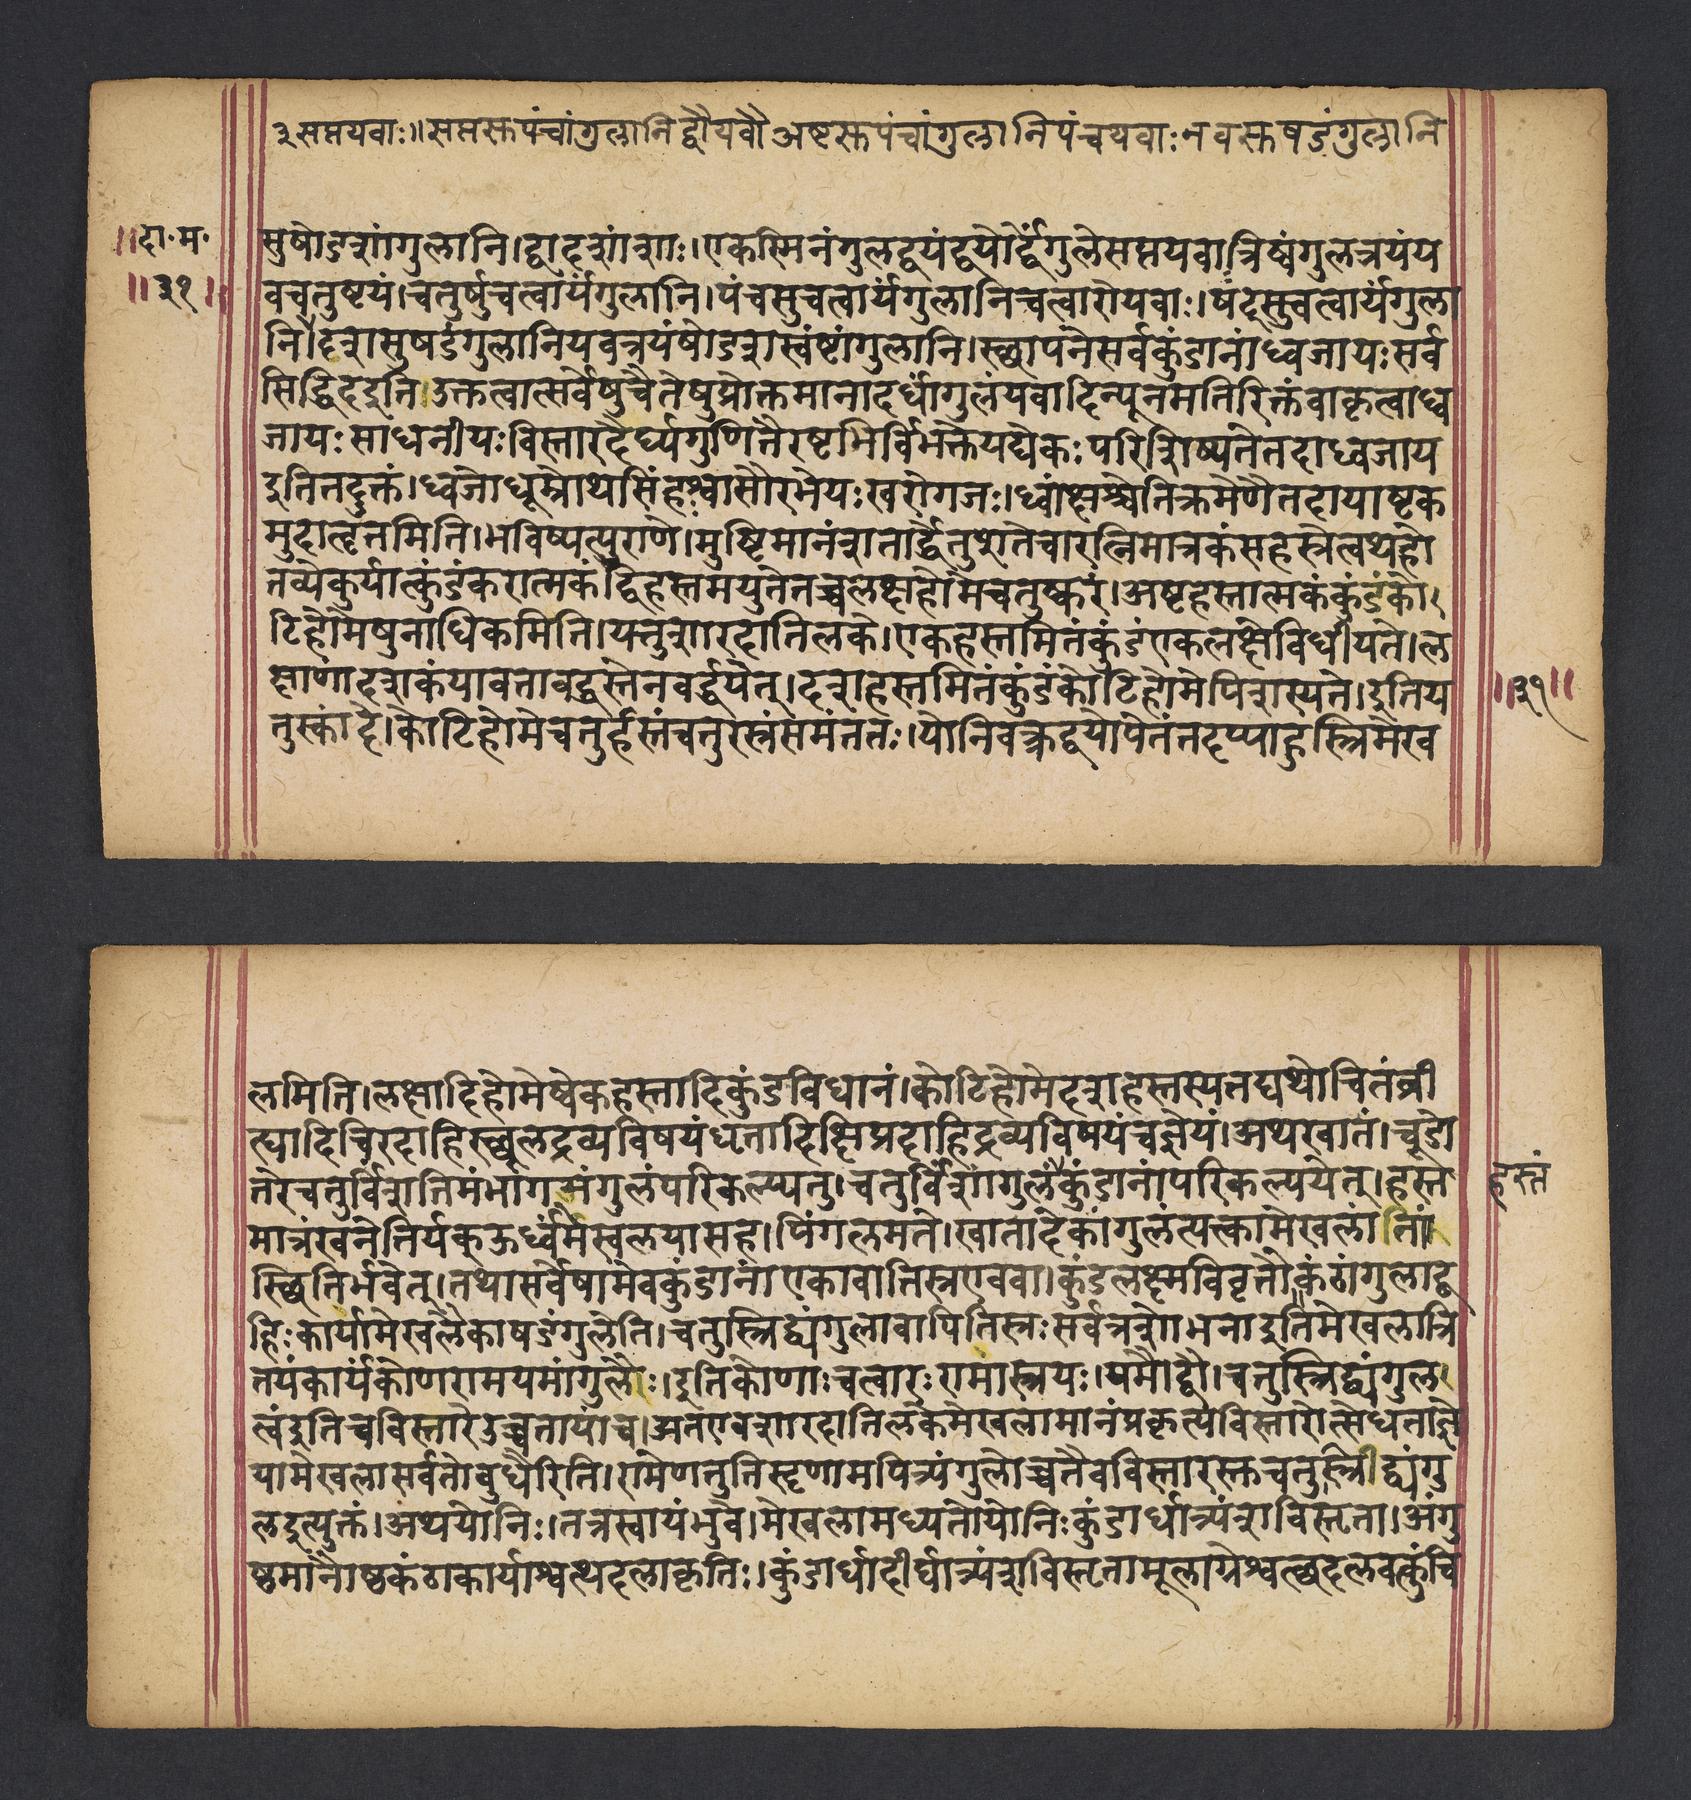 ३सप्तयवाः॥सप्तस्क्तपंचांगुलानिद्वौयवौअष्टस्क्तपंचांगुलानिपंचयवाःनवस्क्तषडंगुलानि
॥दा॰म॰
॥३१॥
सुषोडशांगुलानि।द्वादशांशाः।एकस्मिनंगुलद्वयंद्वयोर्द्व्यंगुलेसप्तयवास्त्रिष्वंगुलत्रयंय
वचतुष्टयं।चतुर्षुचत्वार्यंगुलानि।पंचसुचत्वार्यंगुलानिचत्वारोयवाः।षट्सुचत्वार्यंगुला
नि।दशसुषडंगुलानियवत्रयंषोडशस्वष्टांगुलानि।स्छापनेसर्वकुंडानांध्वजायःसर्व
सिद्धिदइति।उक्तत्वात्सर्वेषुचैतेषुप्रोक्तमानादर्धांगुलंयवादिन्यूनमतिरिक्तंवाकृत्वाध्व
जायःसाधनीयःविस्तारदैर्घ्यगुणितैरष्टभिर्विभक्तेयद्येकःपरिशिष्यतेतदाध्वजाय
इतितदुक्तं।ध्वजोधूम्रोथसिंहश्वासौरभेयःखरोगजः।ध्वांक्षश्चेतिक्रमेणैतदायाष्टक
मुदाहृतमिति।भविष्यत्पुराणे।मुष्टिमानंशतार्द्धेतुशतेचारत्निमात्रकंसहस्रेत्वथहो
तव्येकुर्यात्कुंडंकरात्मकंद्विहस्तमयुतेतच्चलक्षहोमेचतुष्करं।अष्टहस्तात्मकंकुंडंको
टिहोमेषुनाधिकमिति।यत्तुशारदातिलके।एकहस्तमितंकुंडंएकलक्षेविधीयते।ल
क्षाणांदशकंयावत्तावद्धस्तेनवर्द्धयेत्।दशहस्तमितंकुंडंकोटिहोमेपिशस्यते।इतिय
तुस्कांदे।कोटिहोमेचतुर्हस्तंचतुरस्रंसमंततः।योनिवक्त्रद्वयोपेतंतदप्याहुस्त्रिमेख
॥३१॥
लमिति।लक्षादिहोमेष्वेकहस्तादिकुंडविधानं।कोटिहोमेदशहस्तस्यतद्यथोचितंव्री
ह्यादिचिरदाहिस्छूलद्रव्यविषयंघृतादिक्षिप्रदाहिद्रव्यविषयंचज्ञेयं।अथखातं।चूडो
त्तरेचतुर्विंशतिमंभागमंगुलंपरिकल्प्यतु।चतुर्विंशांगुलंकुंडानांपरिकल्पयेत्।हस्त
हस्तं
मात्रंखनेत्तिर्यक्ऊर्ध्वंमेखलयासह।पिंगलमते।खातादेकांगुलंत्यक्त्कामेखलानां
स्छितिर्भवेत्।तथासर्वेषामेवकुंडानांएकावातिस्रएववा।कुंडलक्ष्मविवृतौकंठांगुलाद्ब
हिःकार्यामेखलैकाषडंगुलेति।चतुस्त्रिद्व्यंगुलावापितिस्रःसर्वत्रशोभनाइतिमेखलात्रि
तयंकार्यंकोणरामयमांगुलैः।इतिकोणाःचत्वारःरामास्त्रयः।यमौद्वौ।चतुस्त्रिद्व्यंगुल
त्वंइतिचविस्तारेउच्चतायांच।अतएवशारदातिलकेमेखलामानंप्रकृत्यविस्तारोत्सेधतोज्ञे
यामेखलासर्वतोबुधैरिति।रामेणतुतिसृणामपित्र्यंगुलोच्चतैवविस्तारस्क्तचतुस्त्रिद्व्यंगु
लइत्युक्तं।अथयोनिः।तत्रस्वायंभुवे।मेखलामध्यतोयोनिःकुंडार्धात्र्यंशविस्तृता।अंगु
ष्ठमानौष्ठकंठाकार्याश्वत्थदलाकृतिः।कुंडार्धादीर्घात्र्यंशविस्तृतामूलाग्रेश्वत्छदलवत्कुंचि